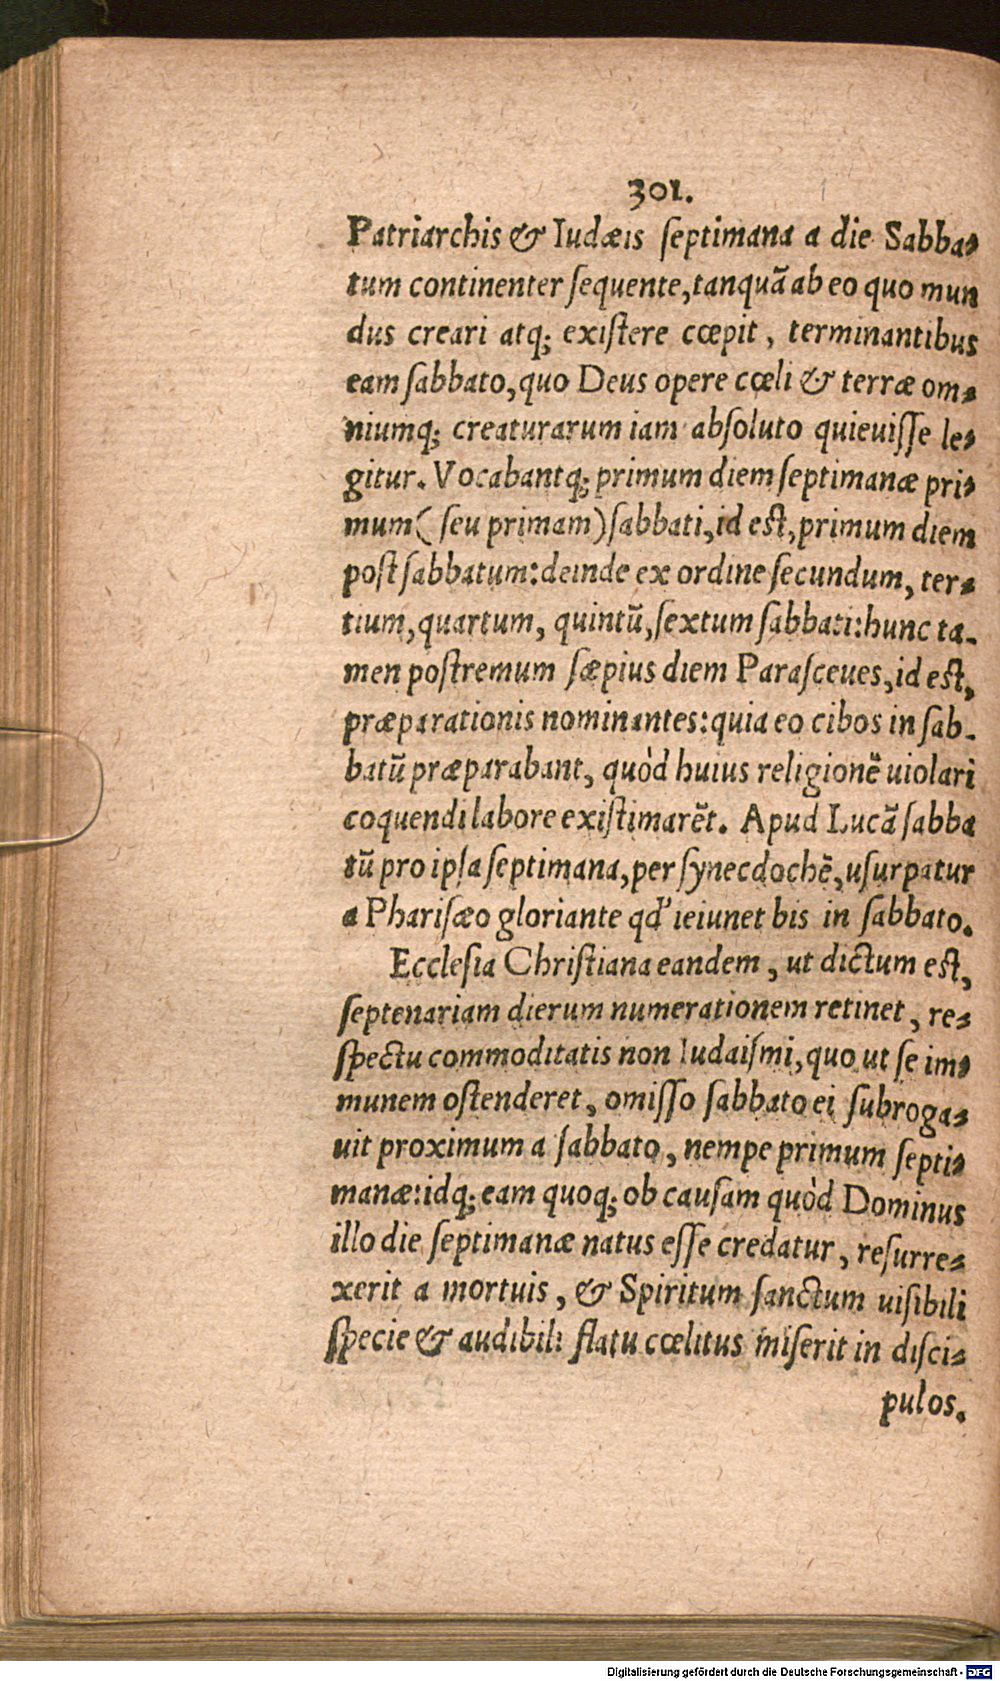 301.
Patriarchis & Iudæis septimana a die Sabba-
tum continenter sequente, tanquã ab eo quo mun
dus creari atq; existere cœpit, terminantibus
eam sabbato, quo Deus opere cœli & terræ om-
niumq; creaturarum iam absoluto quieuisse le-
gitur. Vocabantq; primum diem septimanæ pri-
mum (seu primam) sabbati, id est, primum diem
post sabbatum: deinde ex ordine secundum, ter-
tium, quartum, quintũ, sextum sabbati: hunc ta-
men postremum sæpius diem Parasceues, id est,
præparationis nominantes: quia eo cibos in sab-
batũ præparabant, quòd huius religionẽ uiolari
coquendi labore existimarẽt. Apud Lucã sabba
tũ pro ipsa septimana, per synecdochẽ, usurpatur
a Pharisæo gloriante qd' ieiunet bis in sabbato.
Ecclesia Christiana eandem, ut dictum est,
septenariam dierum numerationem retinet, re-
spectu commoditatis non Iudaismi, quo ut se im-
munem ostenderet, omisso sabbato ei subroga-
uit proximum a sabbato, nempe primum septi-
manæ: idq; eam quoq; ob causam quòd Dominus
illo die septimanæ natus esse credatur, resurre-
xerit a mortuis, & Spiritum sanctum uisibili
specie & audibili flatu cœlitus miserit in disci-
pulos.
Digitalisierung gefördert durch die Deutsche Forschungsgemeinschaft - DFG